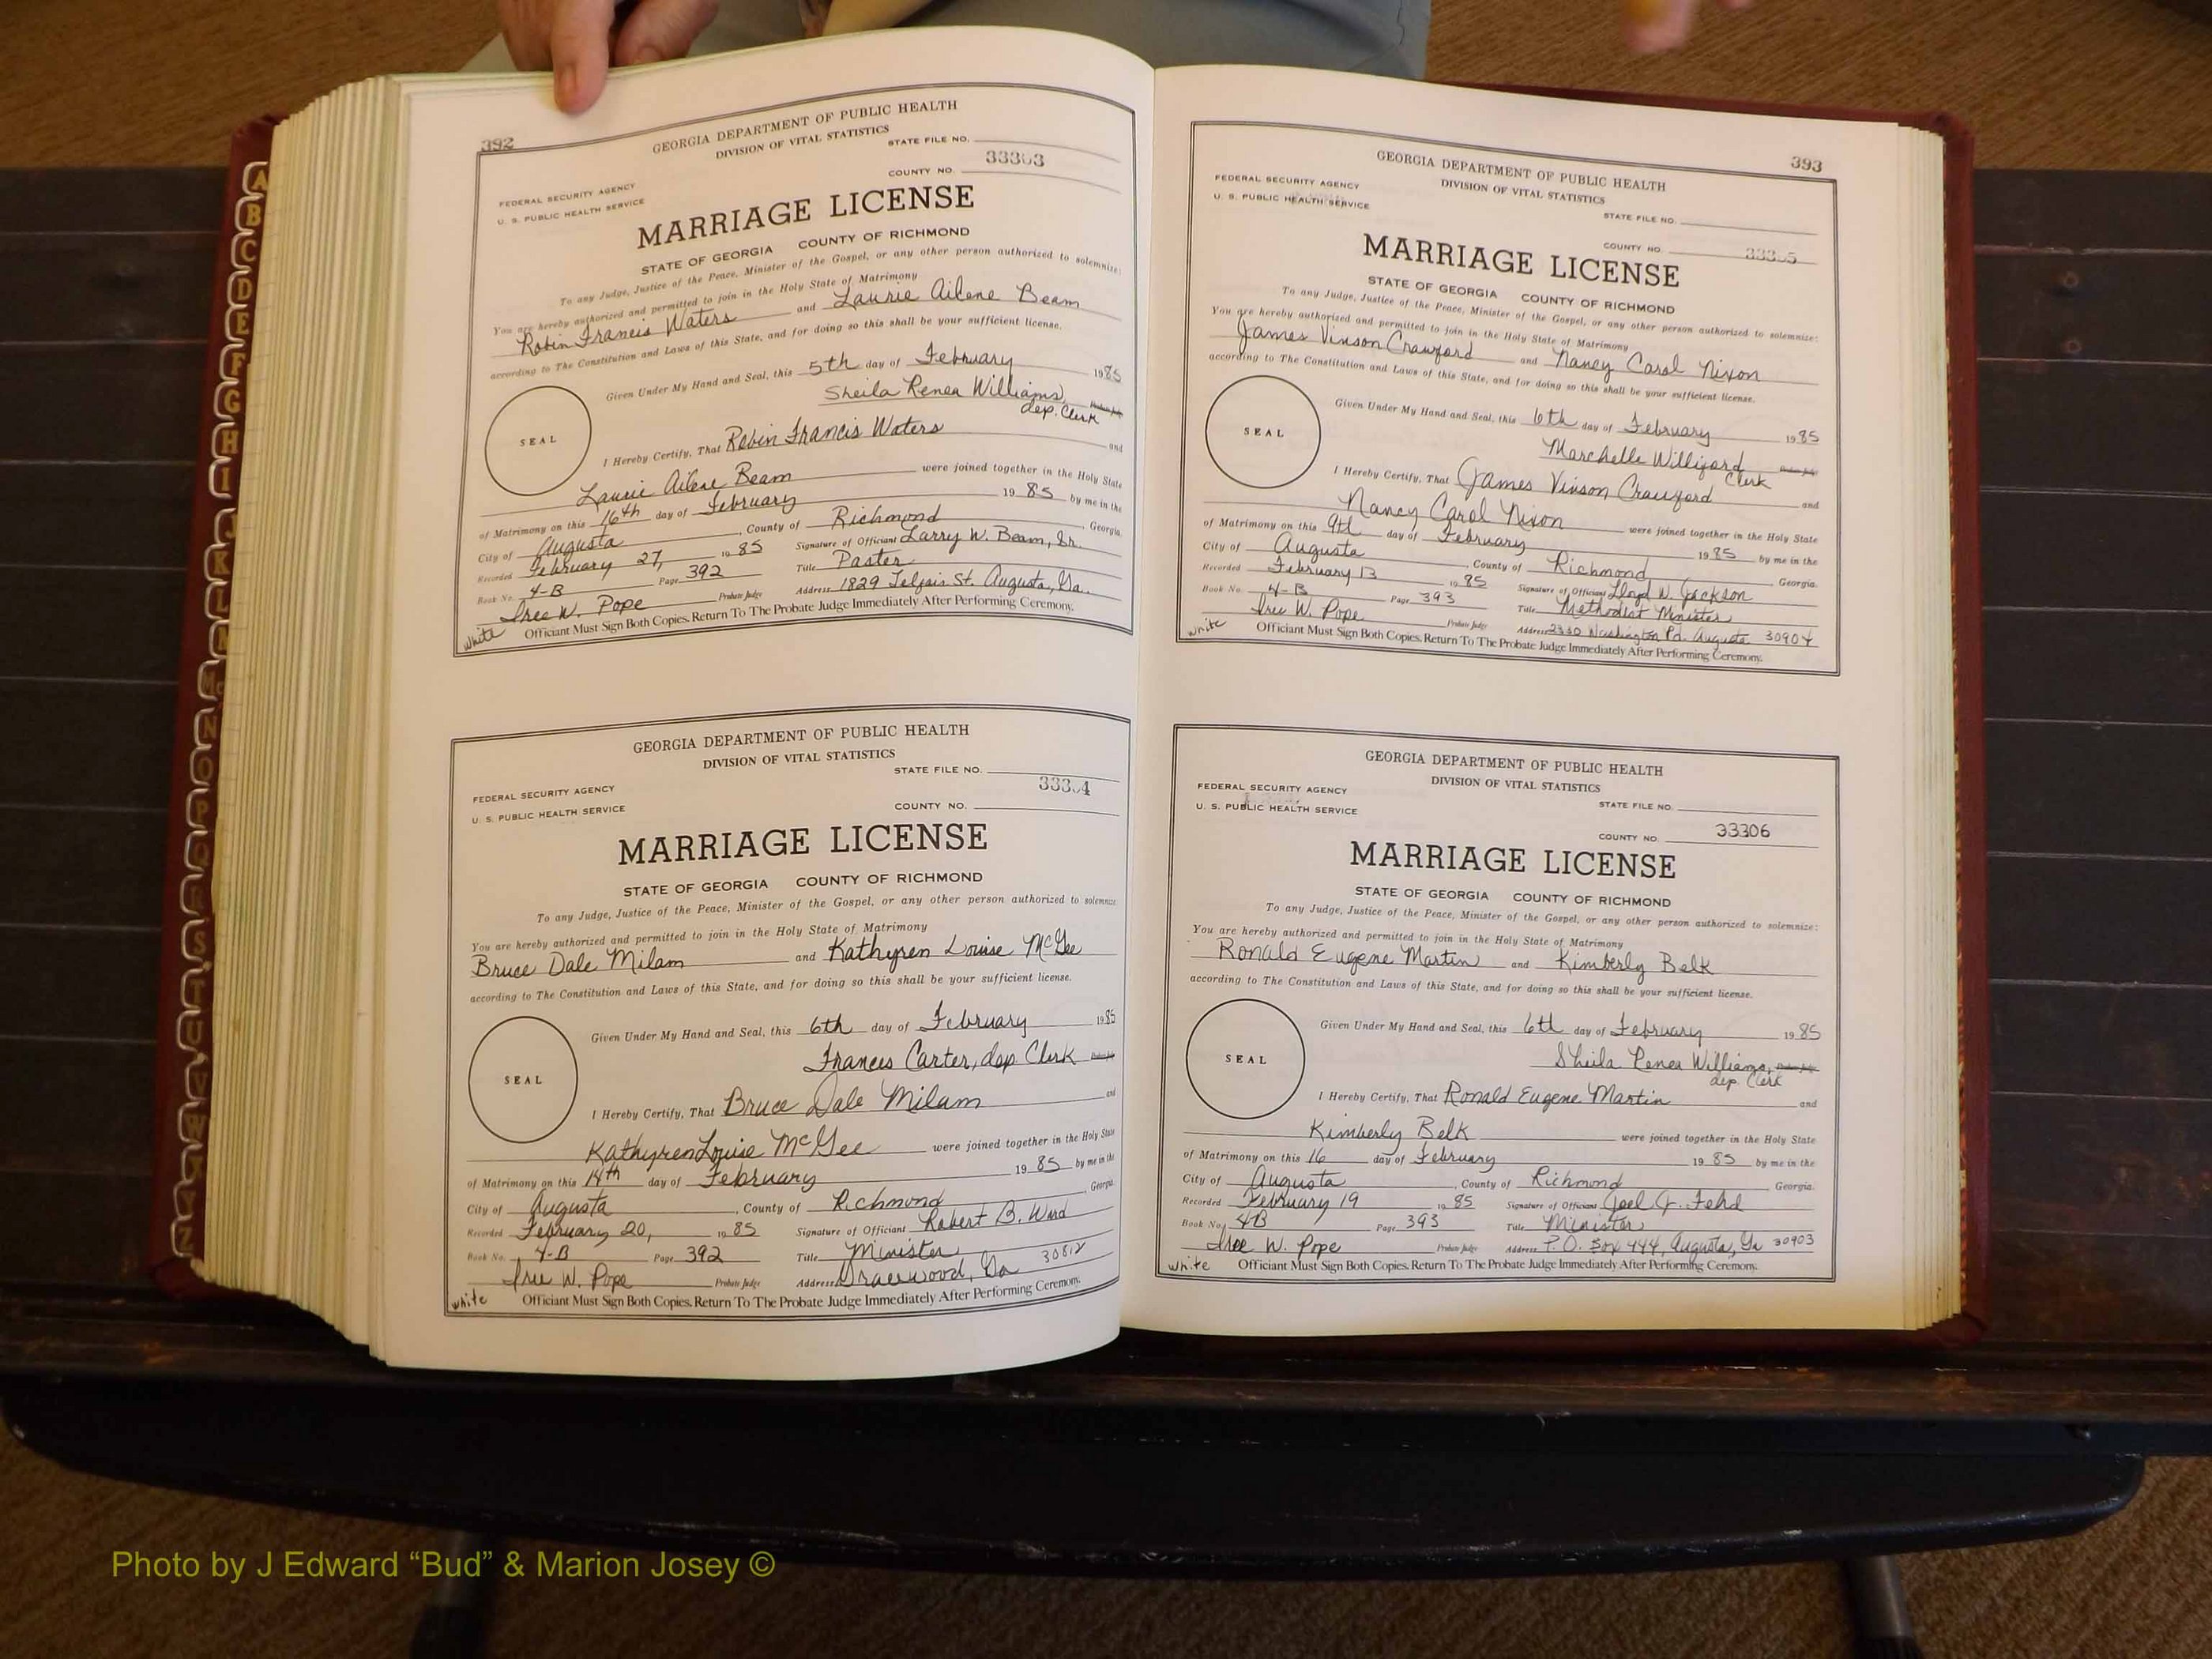 392
GEORGIA DEPARTMENT OF PUBLIC HEALTH
DIVISION OF VITAL STATISTICS
STATE FILE NO.
33303
COUNTY NO.
FEDERAL SECURITY AGENCY
U. S. PUBLIC HEALTH SERVICE
MARRIAGE LICENSE
STATE OF GEORGIA COUNTY OF RICHMOND
To any Judge, Justice of the Peace, Minister of the Gospel, or any other person authorized to solemnize:
You are hereby authorized and permitted to join in the Holy State of Matrimony
Robin Francis Waters and Laurie Ailene Beam
according to The Constitution and Laws of this State, and for doing so this shall be your sufficient license.
Given Under My Hand and Seal, this 5th day of February 1985
Sheila Renea Williams, Probate Judge
dep. Clerk
SEAL
I Hereby Certify, That Robin Francis Waters and
Laurie Ailene Beam were joined together in the Holy State
of Matrimony on this 16th day of February 1985 by me in the
City of Augusta, County of Richmond, Georgia.
Recorded February 27, 1985 Signature of Officiant Larry W. Beam, Sr.
Book No. 4-B Page 392 Title Pastor
Pope Probate Judge Address 1829 Telfair St. Augusta, Ga.
White Officiant Must Sign Both Copies. Return To The Probate Judge Immediately After Performing Ceremony.
GEORGIA DEPARTMENT OF PUBLIC HEALTH
DIVISION OF VITAL STATISTICS
STATE FILE NO.
33304
FEDERAL SECURITY AGENCY
COUNTY NO.
U. S. PUBLIC HEALTH SERVICE
MARRIAGE LICENSE
STATE OF GEORGIA COUNTY OF RICHMOND
To any Judge, Justice of the Peace, Minister of the Gospel, or any other person authorized to solemnize
You are hereby authorized and permitted to join in the Holy State of Matrimony
Bruce Dale Milam and Kathyren Louise McGee
according to The Constitution and Laws of this State, and for doing so this shall be your sufficient license.
Given Under My Hand and Seal, this 6th day of February 1985
Frances Carter, dep Clerk Probate Judge
SEAL
I Hereby Certify, That Bruce Dale Milam and
Kathyren Louise McGee were joined together in the Holy State
of Matrimony on this 14th day of February 1985 by me in the
City of Augusta, County of Richmond, Georgia.
Recorded February 20, 1985 Signature of Officiant Robert B. Ward
Book No. 4-B Page 392 Title Minister
W. Pope Probate Judge Address Gracewood, Ga 30812
white Officiant Must Sign Both Copies. Return To The Probate Judge Immediately After Performing Ceremony.
393
GEORGIA DEPARTMENT OF PUBLIC HEALTH
DIVISION OF VITAL STATISTICS
FEDERAL SECURITY AGENCY
U. S. PUBLIC HEALTH SERVICE
STATE FILE NO.
COUNTY NO. 33305
MARRIAGE LICENSE
STATE OF GEORGIA COUNTY OF RICHMOND
To any Judge, Justice of the Peace, Minister of the Gospel, or any other person authorized to solemnize:
You are hereby authorized and permitted to join in the Holy State of Matrimony
James Vinson Crawford and Nancy Carol Nixon
according to The Constitution and Laws of this State, and for doing so this shall be your sufficient license.
Given Under My Hand and Seal, this 6th day of February 1985
Marchelle Williford Probate Judge
Clerk
SEAL
I Hereby Certify, That James Vinson Crawford and
Nancy Carol Nixon were joined together in the Holy State
of Matrimony on this 9th day of February 1985 by me in the
City of Augusta, County of Richmond, Georgia.
Recorded February 13 1985 Signature of Officiant Lloyd W. Jackson
Book No. 4-B Page 393 Title Methodist Minister
W. Pope Probate Judge Address 2330 Washington Rd. Augusta 30904
white Officiant Must Sign Both Copies. Return To The Probate Judge Immediately After Performing Ceremony.
GEORGIA DEPARTMENT OF PUBLIC HEALTH
DIVISION OF VITAL STATISTICS
FEDERAL SECURITY AGENCY
U. S. PUBLIC HEALTH SERVICE
STATE FILE NO.
COUNTY NO. 33306
MARRIAGE LICENSE
STATE OF GEORGIA COUNTY OF RICHMOND
To any Judge, Justice of the Peace, Minister of the Gospel, or any other person authorized to solemnize:
You are hereby authorized and permitted to join in the Holy State of Matrimony
Ronald Eugene Martin and Kimberly Belk
according to The Constitution and Laws of this State, and for doing so this shall be your sufficient license.
Given Under My Hand and Seal, this 6th day of February 1985
Sheila Renea Williams, Probate Judge
dep. Clerk
SEAL
I Hereby Certify, That Ronald Eugene Martin and
Kimberly Belk were joined together in the Holy State
of Matrimony on this 16 day of February 1985 by me in the
City of Augusta, County of Richmond, Georgia.
Recorded February 19 1985 Signature of Officiant Joel J.
Book No. 4B Page 393 Title Minister
W. Pope Probate Judge Address P.O. Box 444, Augusta, Ga 30903
white Officiant Must Sign Both Copies. Return To The Probate Judge Immediately After Performing Ceremony.
A
B
C
D
E
F
G
H
I
J
K
L
M
Mc
N
O
P
Q
R
S
T
U
V
W
Z
Photo by J Edward “Bud” & Marion Josey ©